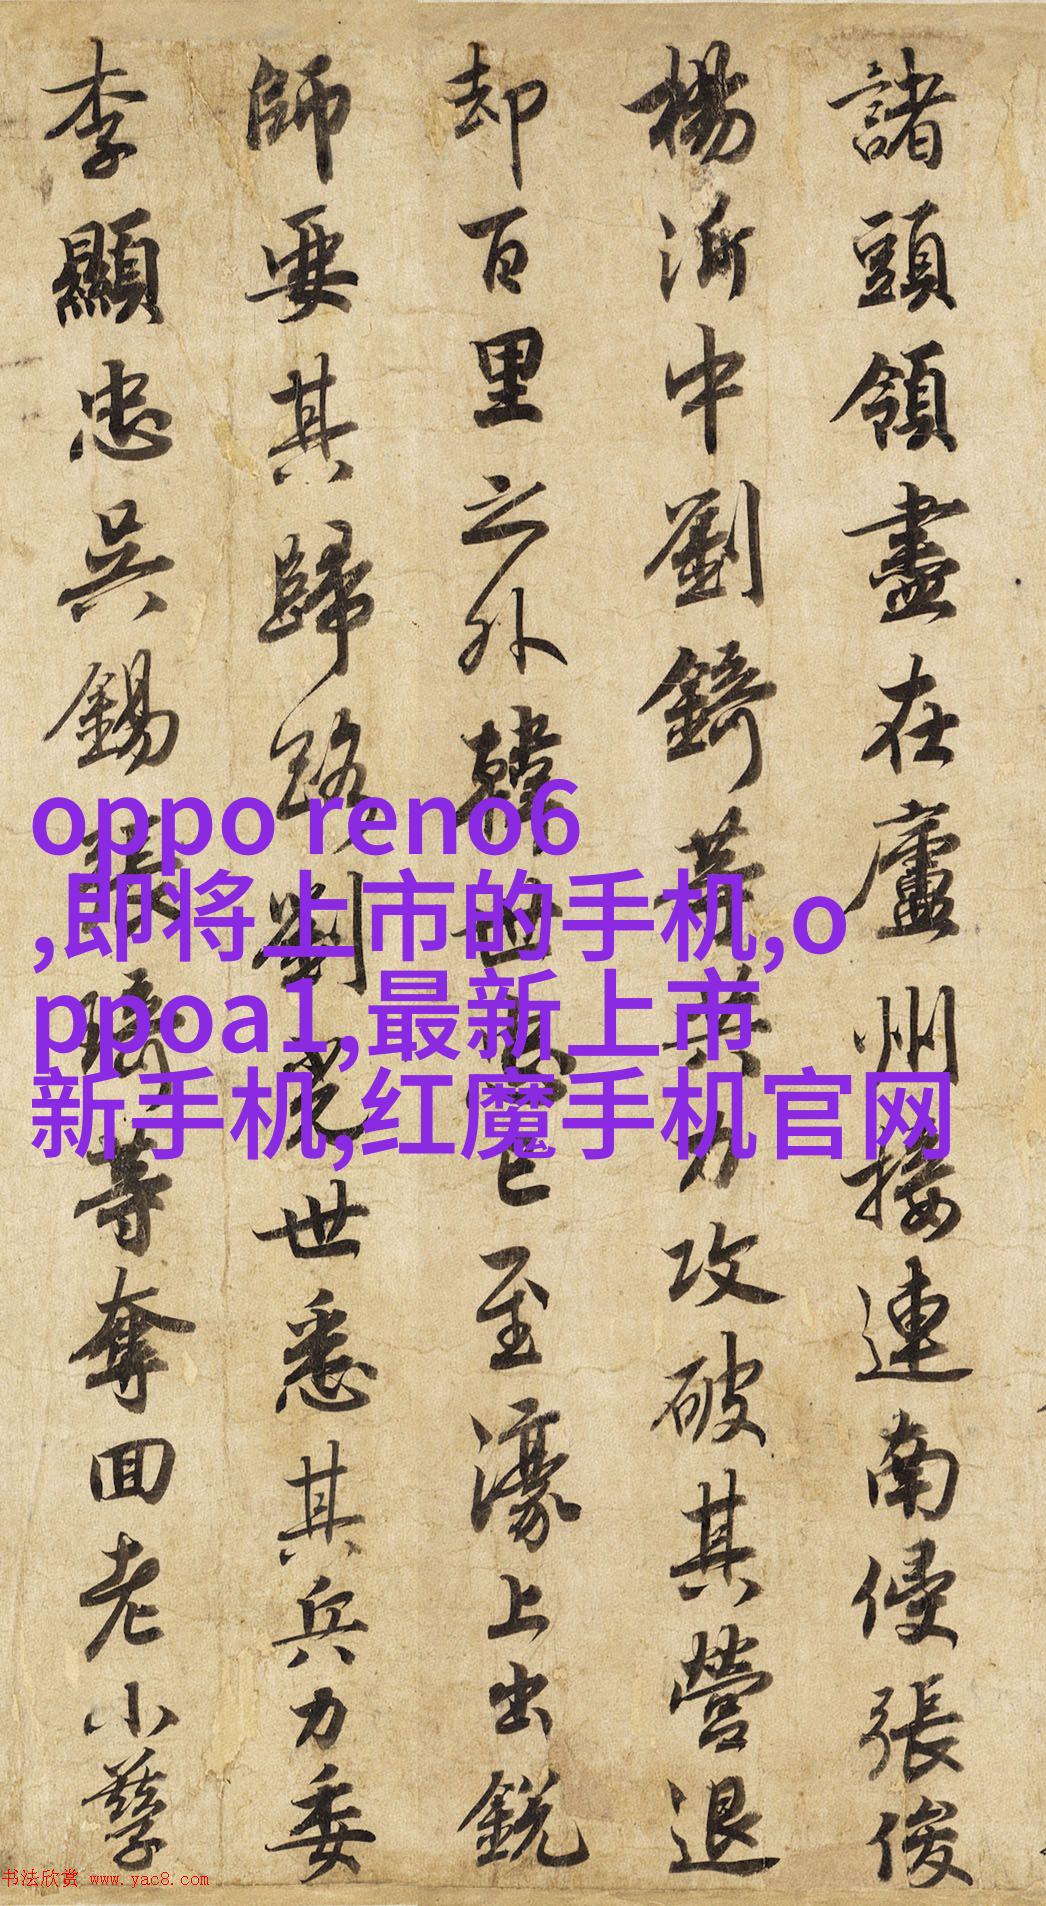 諸頭領盡在廬州接連南侵張俊
楊沂中劉錡等共力攻破其營退
却百里之外韓世忠已至濠上出銳
師要其歸路劉光世悉其兵力委
李顯忠吳錫張琦等奪回老小孳
oppo reno6
,即将上市的手机,o
ppoa1,最新上市
新手机,红魔手机官网
书法欣赏 www.yac8.com